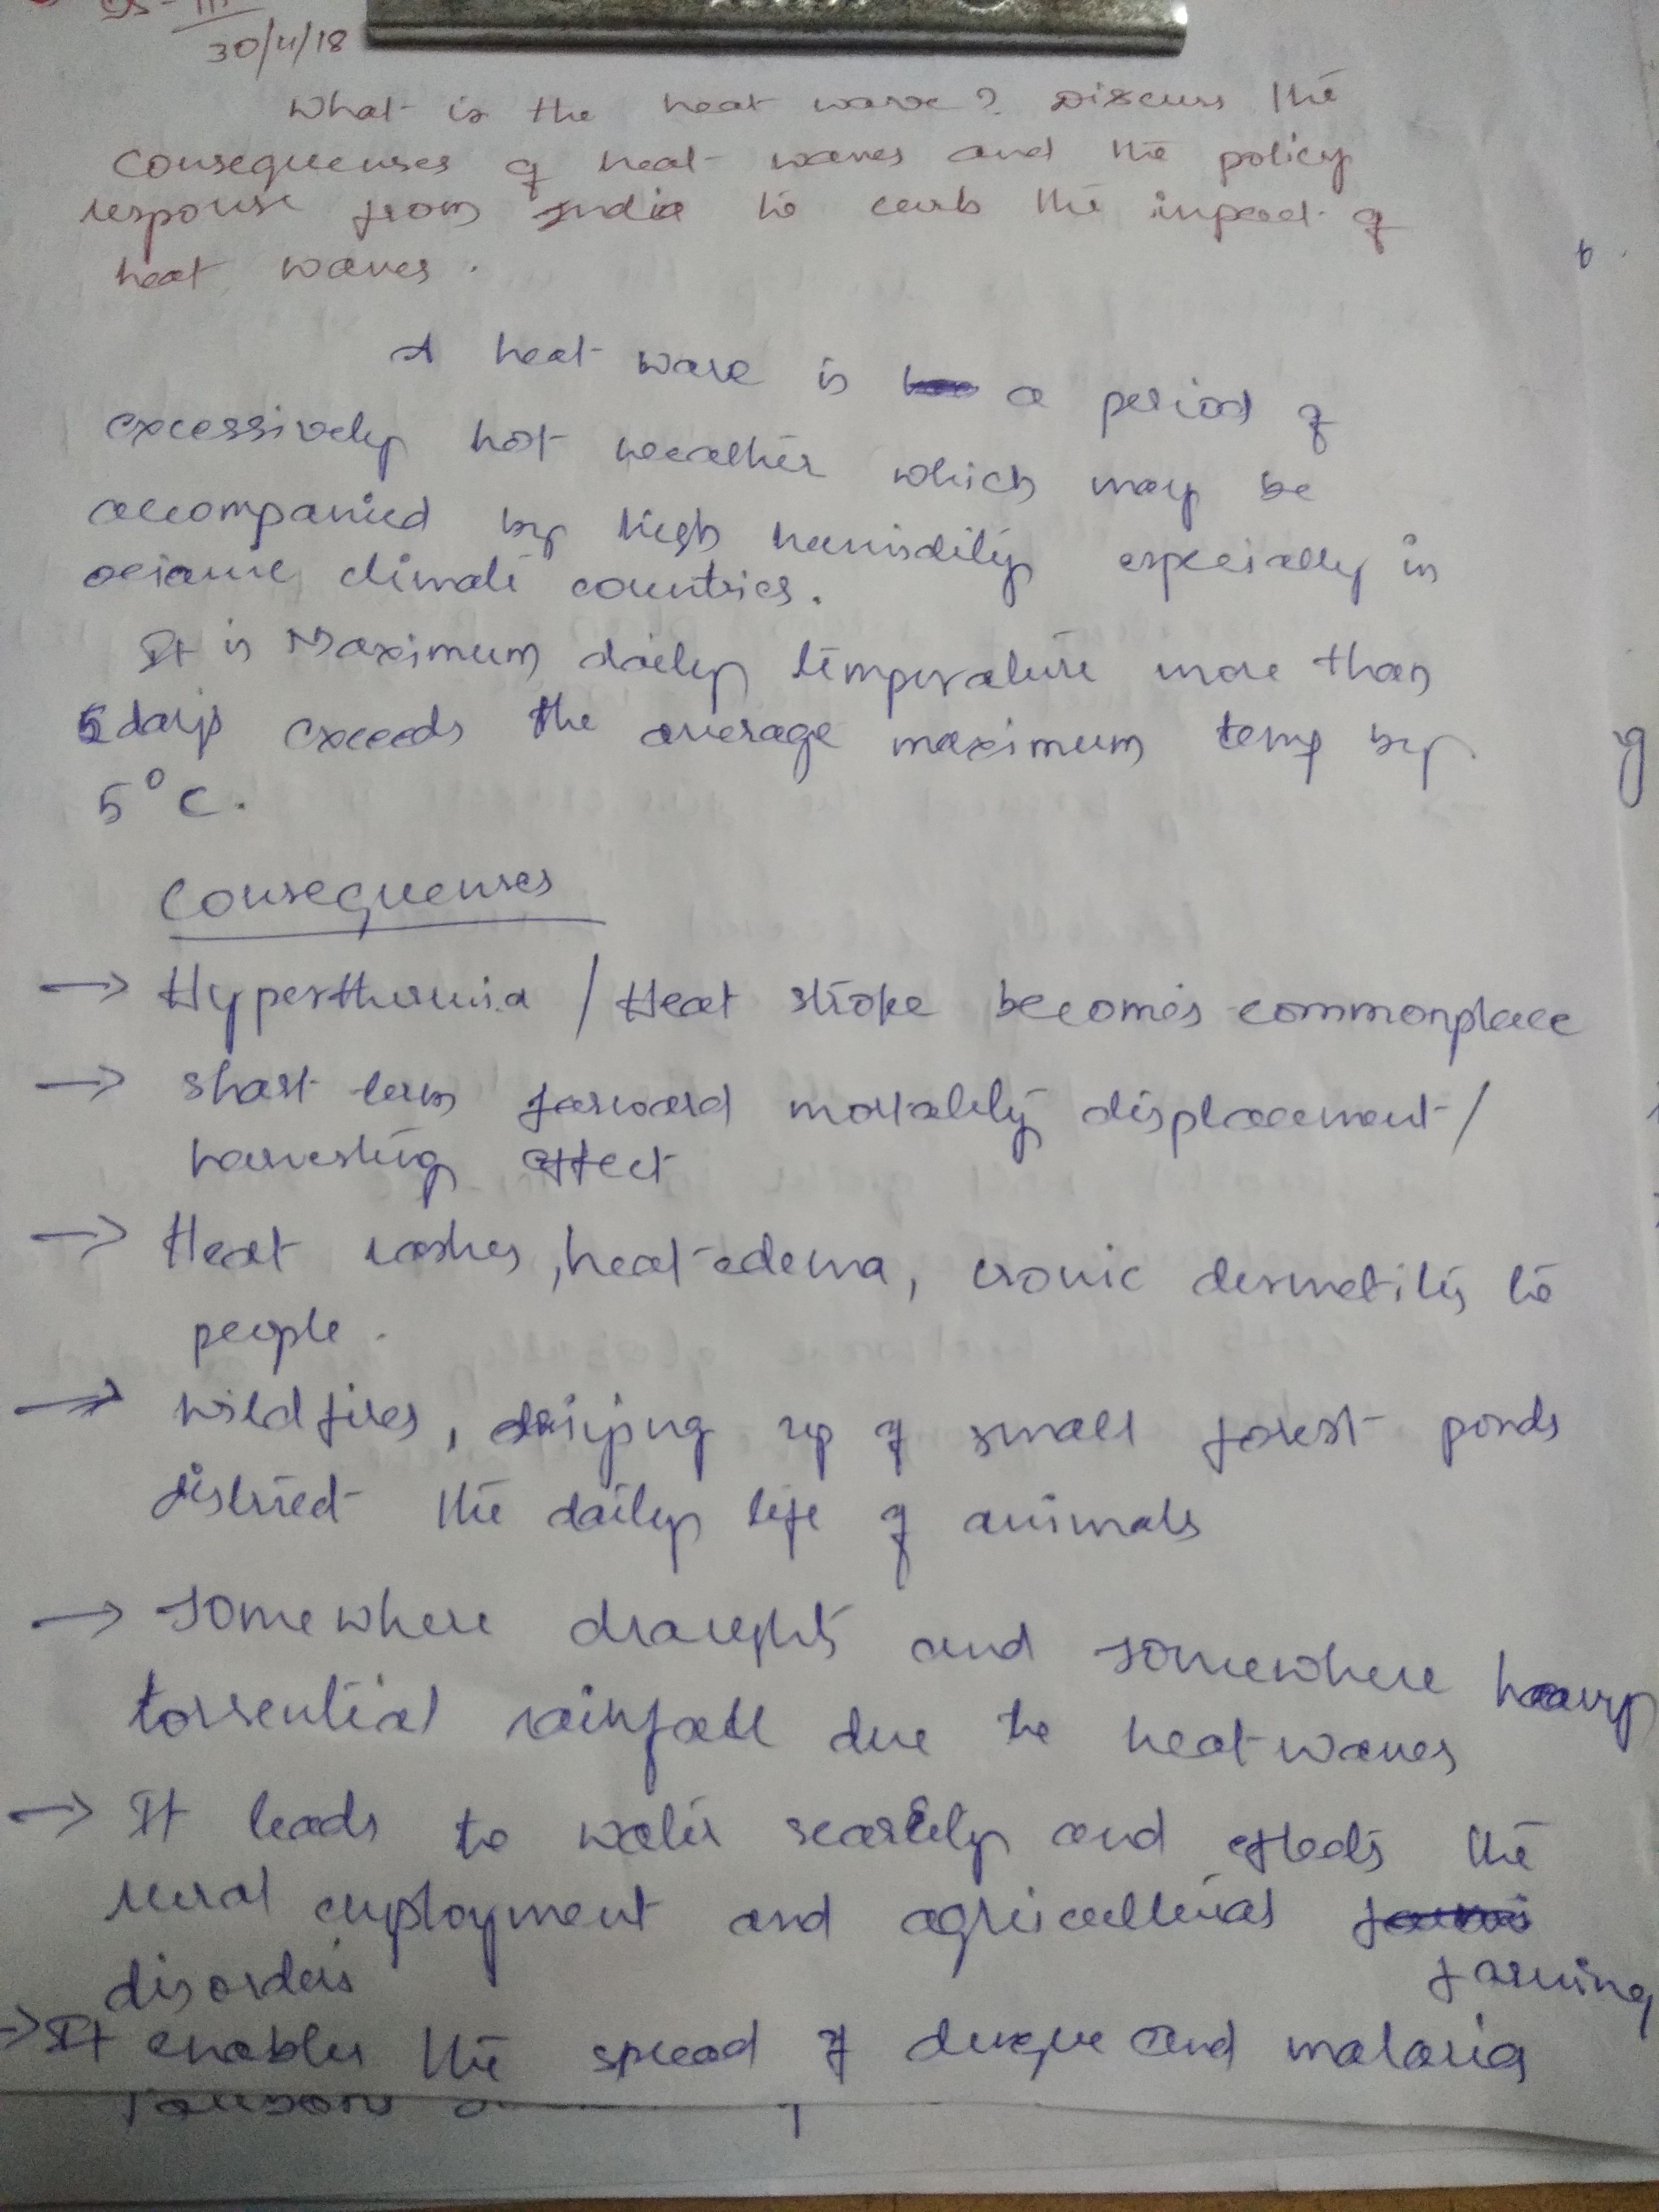 GS-III
30/4/18
What is the heat wave? Discuss the
consequenses of heat waves and the policy
response from India to curb the impact of
heat waves.
A heat wave is a period of
excessively hot weather which may be
accompanied by high humidity especially in
ocianic climate countries.
It is Maximum daily temperature more than
5 days exceeds the average maximum temp by
5°C.
Consequenses
→ Hyperthermia / Heat stroke becomes commonplace
→ short term forward mortality displacement /
harvesting effect
→ Heat rashes, heat edema, cronic dermatitis to
people.
→ wild fires, drying up of small forest ponds
distruct the daily life of animals
→ somewhere draughts and somewhere heavy
torrential rainfall due to heat waves
→ It leads to water scarcity and effects the
rural employment and agricultural
farming
disorders
→ It enables the spread of dengue and malaria